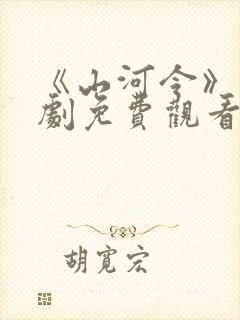 《山河令》
劇免費觀看
胡寬宏